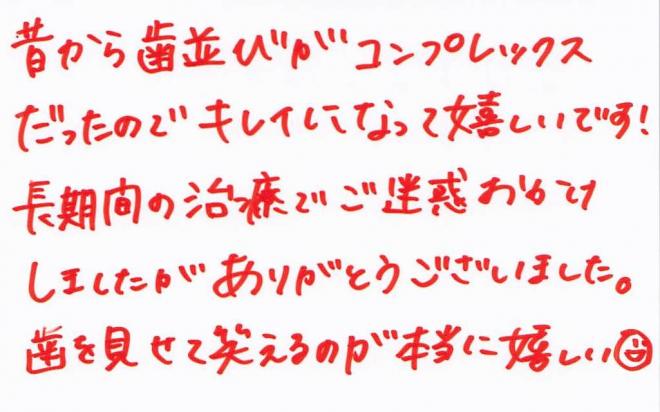 昔から歯並びがコンプレックス
だったのでキレイになって嬉しいです!
長期間の治療でご迷惑おかけ
しましたがありがとうございました。
歯を見せて笑えるのが本当に嬉しい☺